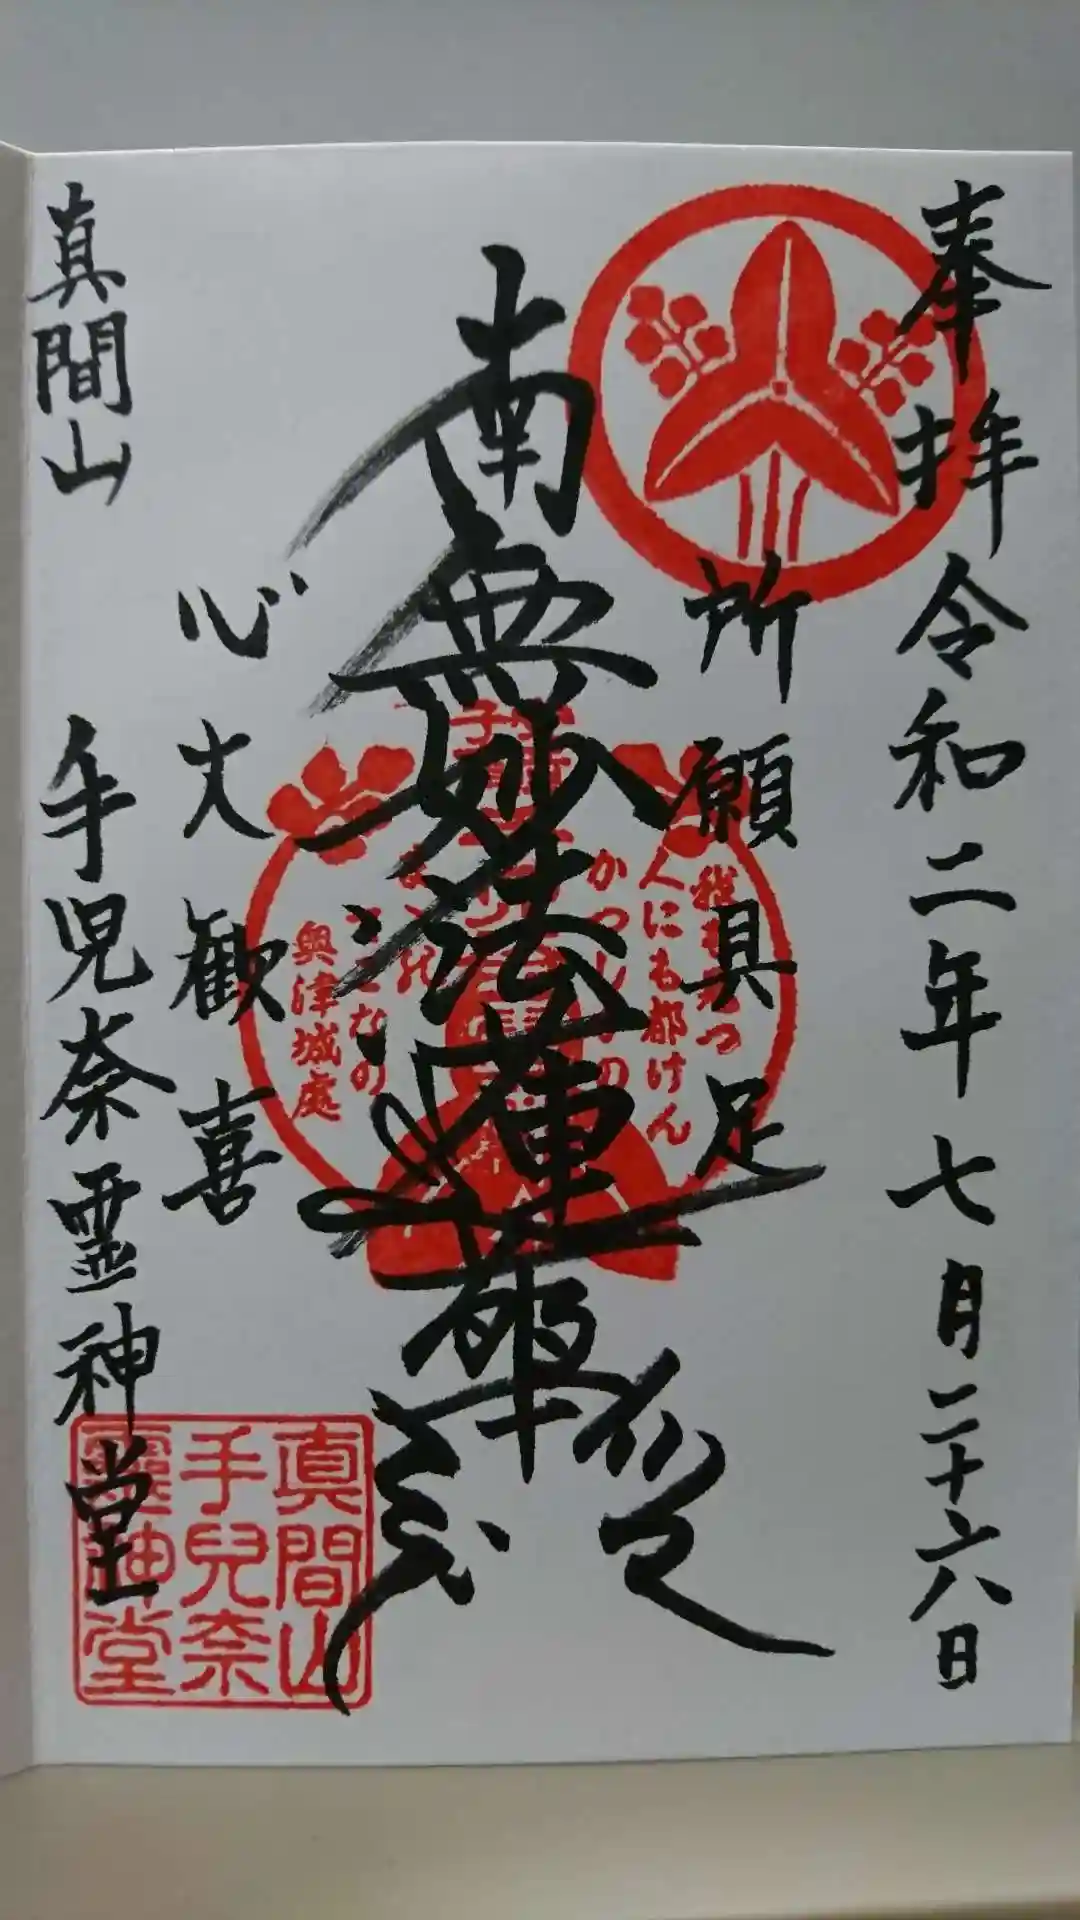 奉拝 令和二年七月二十六日
所願具足
南無妙法蓮華経
心大歓喜
真間山 手児奈霊神堂
我も見つ
人にも都けん
かつしかの
まゝ能
てこなの
奥津城處
真間山
手兒奈
靈神堂